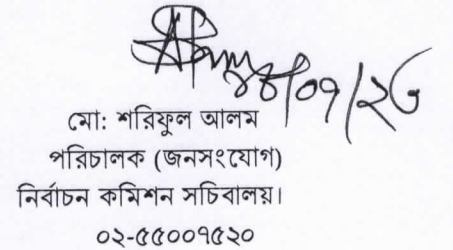 /০৭/২৬
মো: শরিফুল আলম
পরিচালক (জনসংযোগ)
নির্বাচন কমিশন সচিবালয়।
০২-৫৫০০৭৫২০